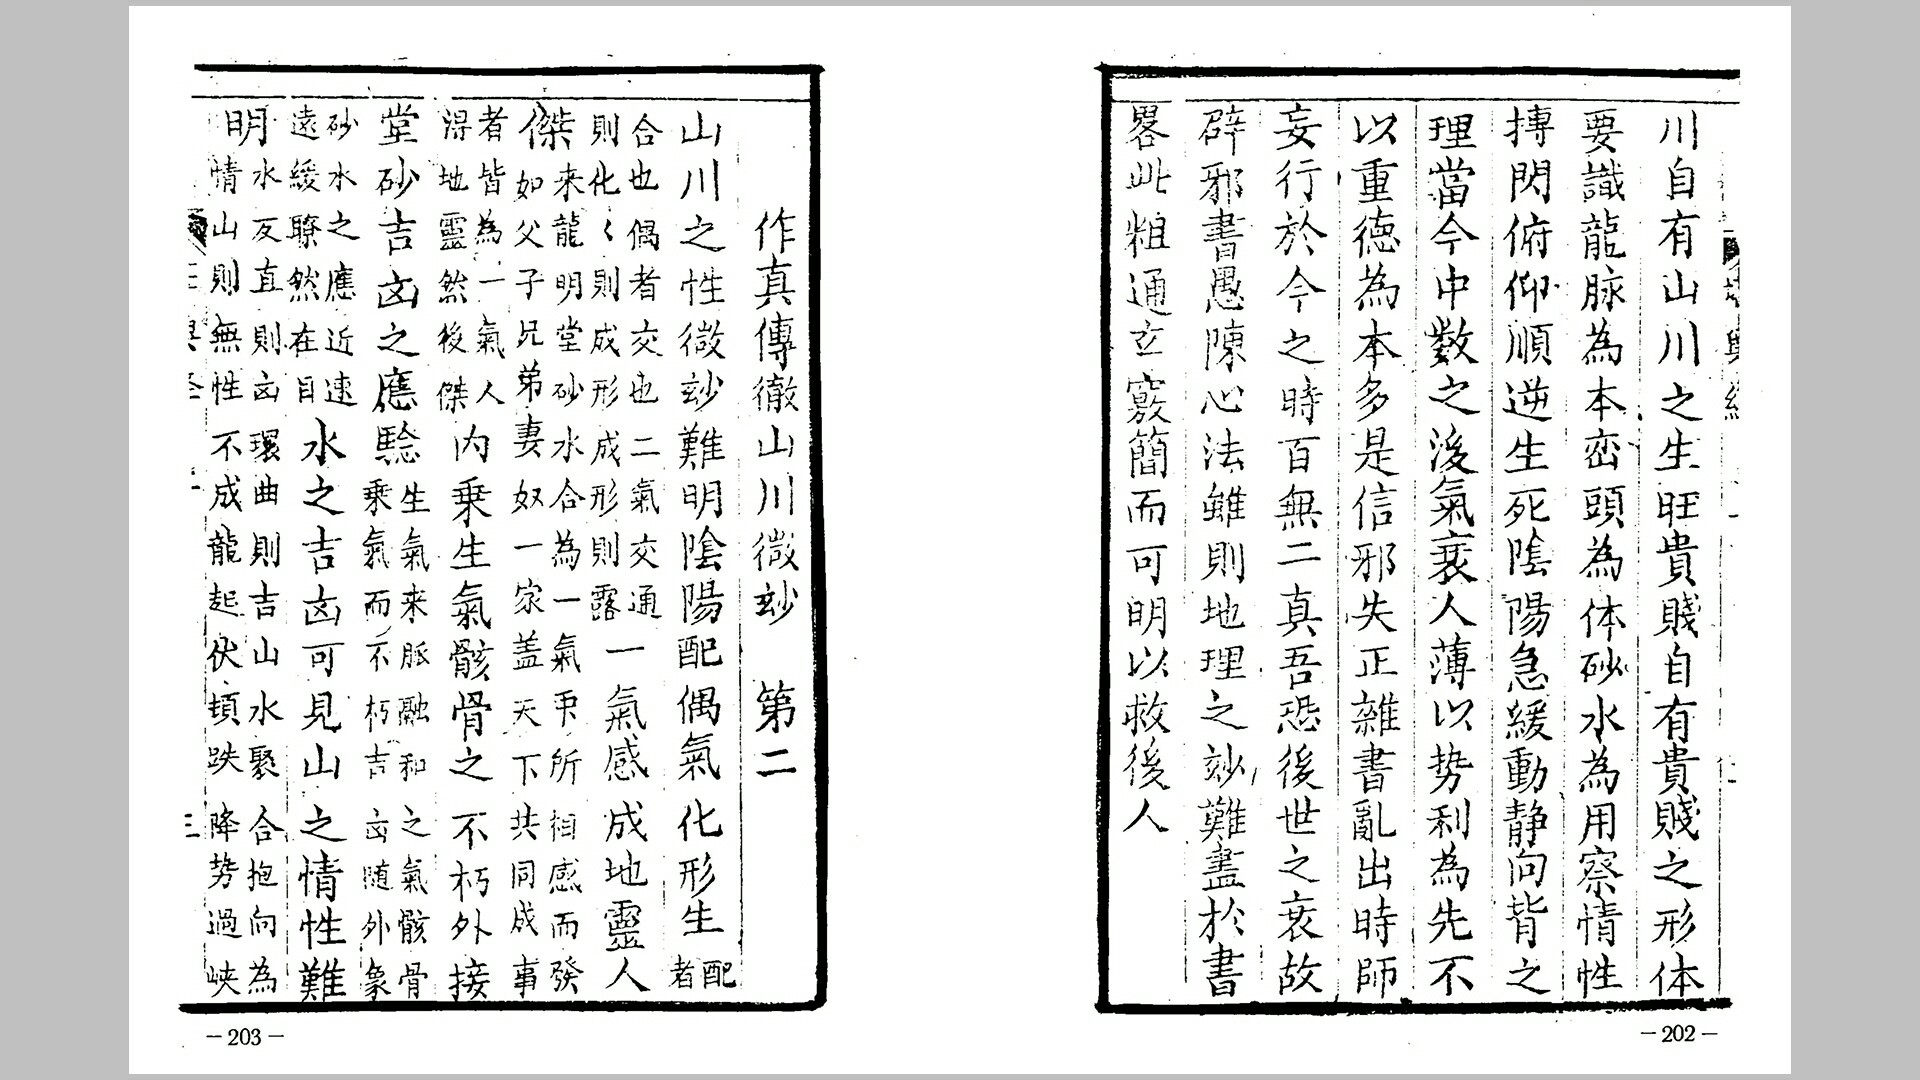 川自有山川之生旺貴賤自有貴賤之形体
要識龍脉為本峦頭為体砂水為用察情性
摶閃俯仰順逆生死陰陽急緩動静向背之
理當今中數之後氣衰人薄以势利為先不
以重德為本多是信邪失正雜書亂出時師
妄行於今之時百無二真吾恐後世之衰故
辟邪書愚陳心法雖則地理之玅難盡於書
畧此粗通玄竅簡而可明以救後人
—202—
作真傳徹山川微玅　第二
山川之性微玅難明陰陽配偶氣化形生配者
合也偶者交也二氣交通則化〻則成形成形則露一氣感成地靈人
傑来龍明堂砂水合為一氣所相感而發如父子兄弟妻奴一家盖天下共同成事
者皆為一氣人得地靈然後傑内乗生氣骸骨之不朽外接
堂砂吉凶之應驗生氣来脈融和之氣骸骨乗氣而不朽吉凶随外象
砂水之應近速遠緩瞭然在目水之吉凶可見山之情性難
明水反直則凶環曲則吉山水聚合抱向為情山則無性不成龍起伏頓跌降势過峡
—203—